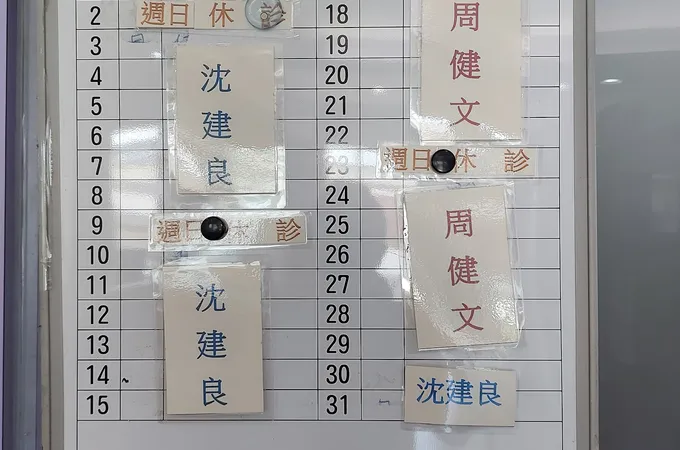 2 週日休診
3
4
5
6
7
8
沈建良
9 週日休診
10
11
12
13
14
15
沈建良
18
19
20
21
22
周健文
23 週日休診
24
25
26
27
28
29
周健文
30
31
沈建良